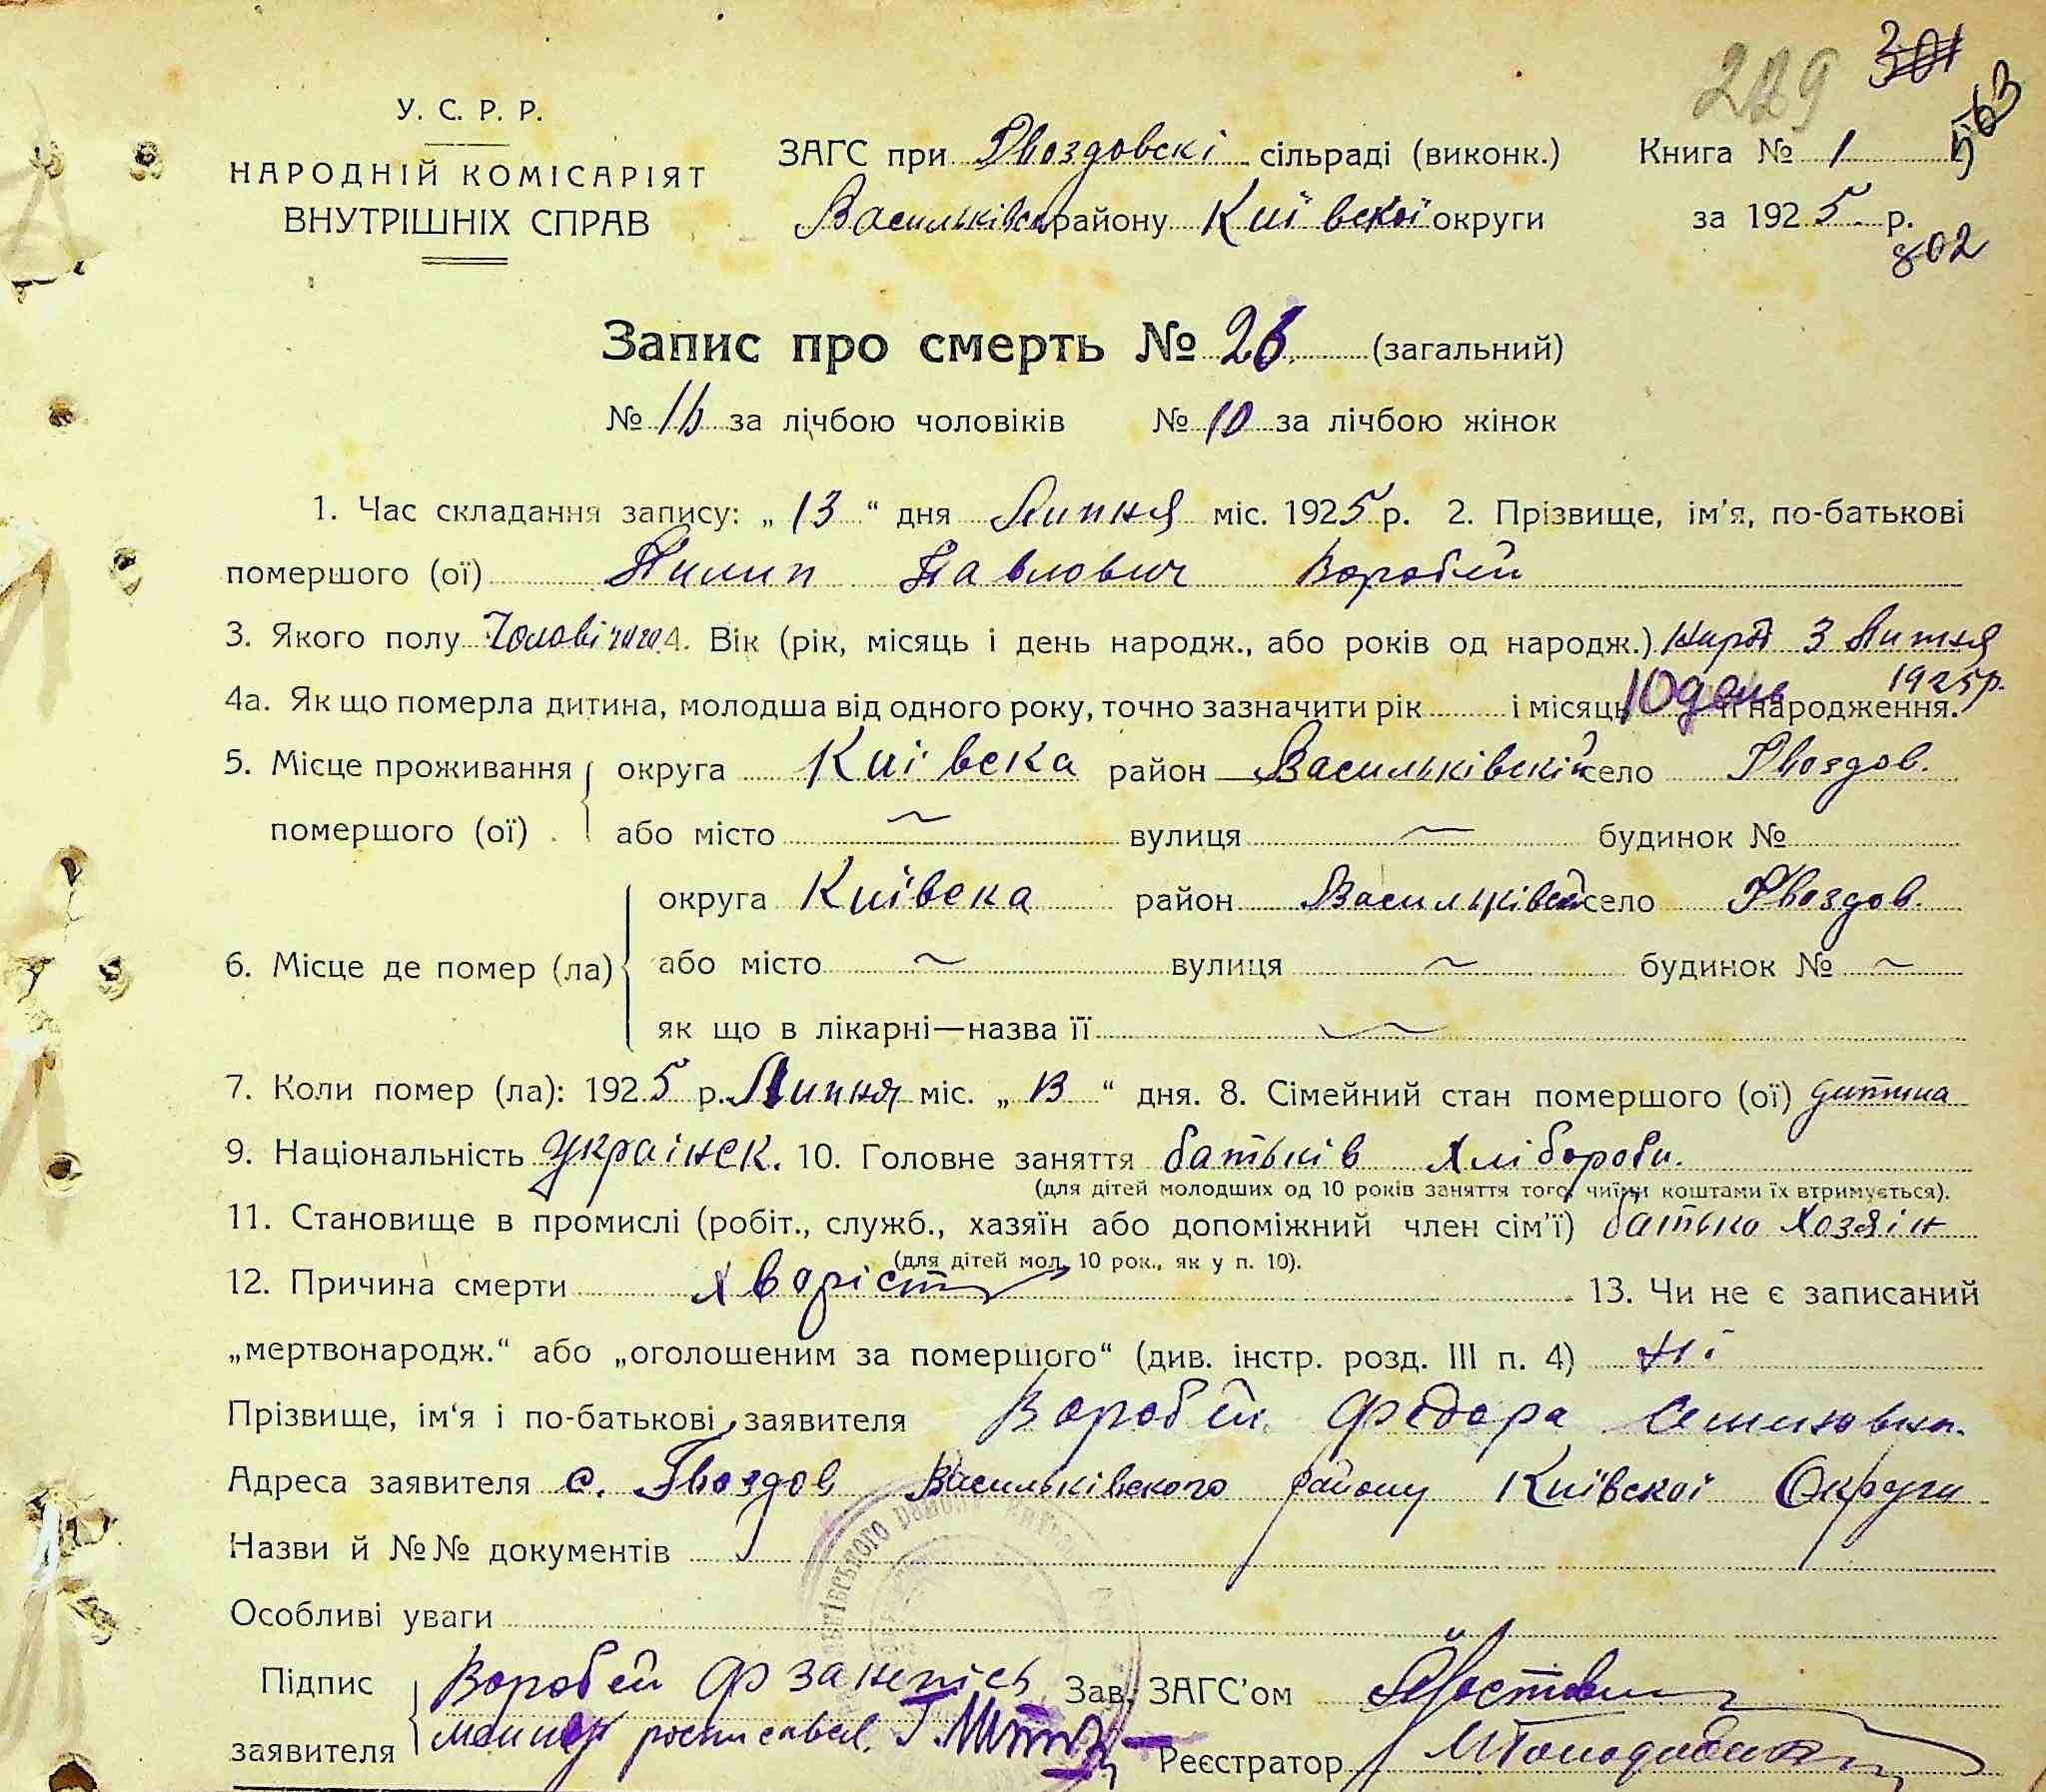 229 301
563
У. С. Р. Р.
НАРОДНІЙ КОМІСАРІЯТ
ВНУТРІШНІХ СПРАВ
ЗАГС при Гвоздовскі сільраді (виконк.) Книга № 1
Васильківськ району Киівскоі округи за 1925 р.
802
Запис про смерть № 26 (загальний)
№ 16 за лічбою чоловіків № 10 за лічбою жінок
1. Час складання запису: „ 13 “ дня Липня міс. 1925 р. 2. Прізвище, ім’я, по-батькові
помершого (ої) Пилип Павлович Воробей
3. Якого полу Чоловічого 4. Вік (рік, місяць і день народж., або років од народж.) Народ 3 Липня
1925р.
4а. Як що померла дитина, молодша від одного року, точно зазначити рік і місяць 10 день її народження.
5. Місце проживання округа Киівска район Васильківский село Гвоздов.
помершого (ої) або місто ~ вулиця ~ будинок №
округа Київска район Васильківск село Гвоздов.
6. Місце де помер (ла) або місто ~ вулиця ~ будинок № ~
як що в лікарні—назва її ~
7. Коли помер (ла): 1925 р. Липня міс. „ 13 “ дня. 8. Сімейний стан помершого (ої) дитина
9. Національність Украінск. 10. Головне заняття батьків Хлібороби.
(для дітей молодших од 10 років заняття того, чиїми коштами їх втримується).
11. Становище в промислі (робіт., служб., хазяїн або допоміжний член сім’ї) батько Хозяін
(для дітей мол. 10 рок., як у п. 10).
12. Причина смерти хворість 13. Чи не є записаний
„мертвонародж.“ або „оголошеним за помершого“ (див. інстр. розд. III п. 4) Ні
Прізвище, ім‘я і по-батькові заявителя Воробей Федора
Адреса заявителя с. Гвоздов Васильківского району Київскоі Округи
Назви й №№ документів
Особливі уваги
Підпис Воробей Ф Зав. ЗАГС’ом
заявителя росписався. Реєстратор